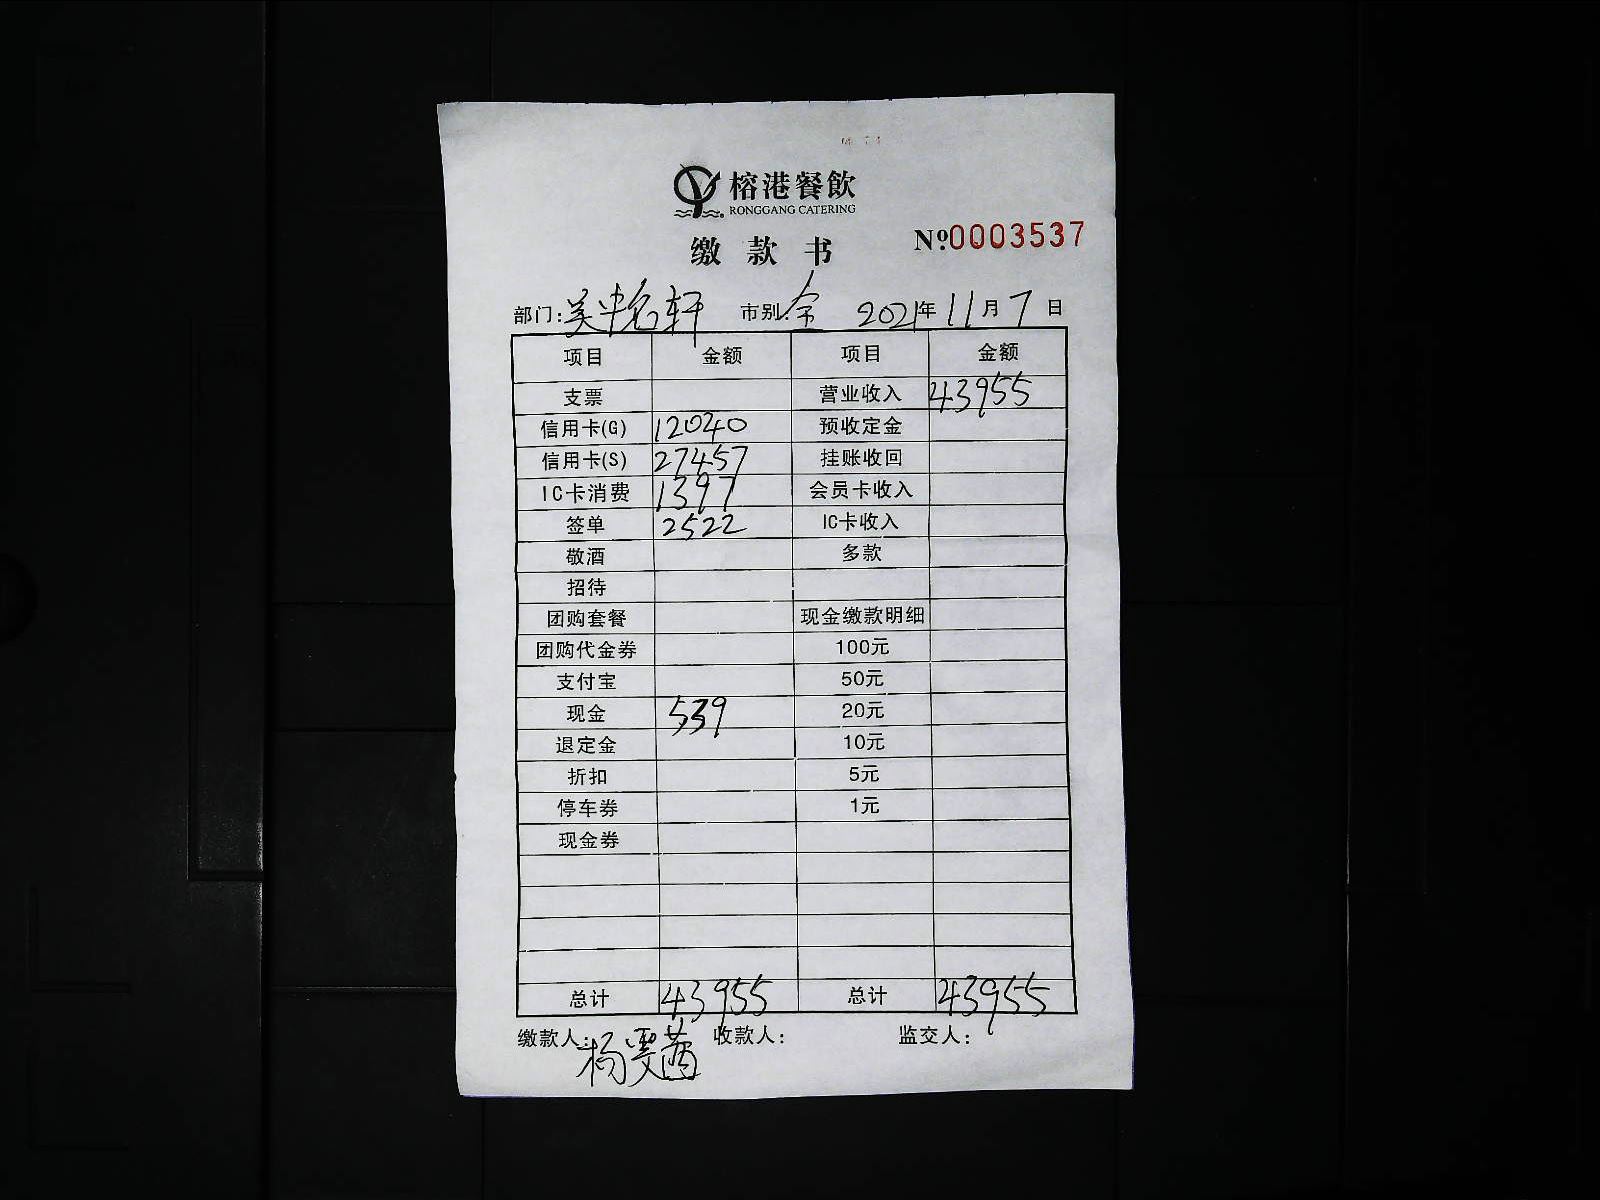 榕港餐飲
RONGGANG CATERING
缴款书
№0003537
部门: 市别:全 2021年11月7日
项目 金额 项目 金额
支票 营业收入 43955
信用卡(G) 12040 预收定金
信用卡(S) 27457 挂账收回
IC卡消费 1397 会员卡收入
签单 2522 IC卡收入
敬酒 多款
招待
团购套餐 现金缴款明细
团购代金券 100元
支付宝 50元
现金 539 20元
退定金 10元
折扣 5元
停车券 1元
现金券
总计 43955 总计 43955
缴款人:杨雯茜 收款人: 监交人: